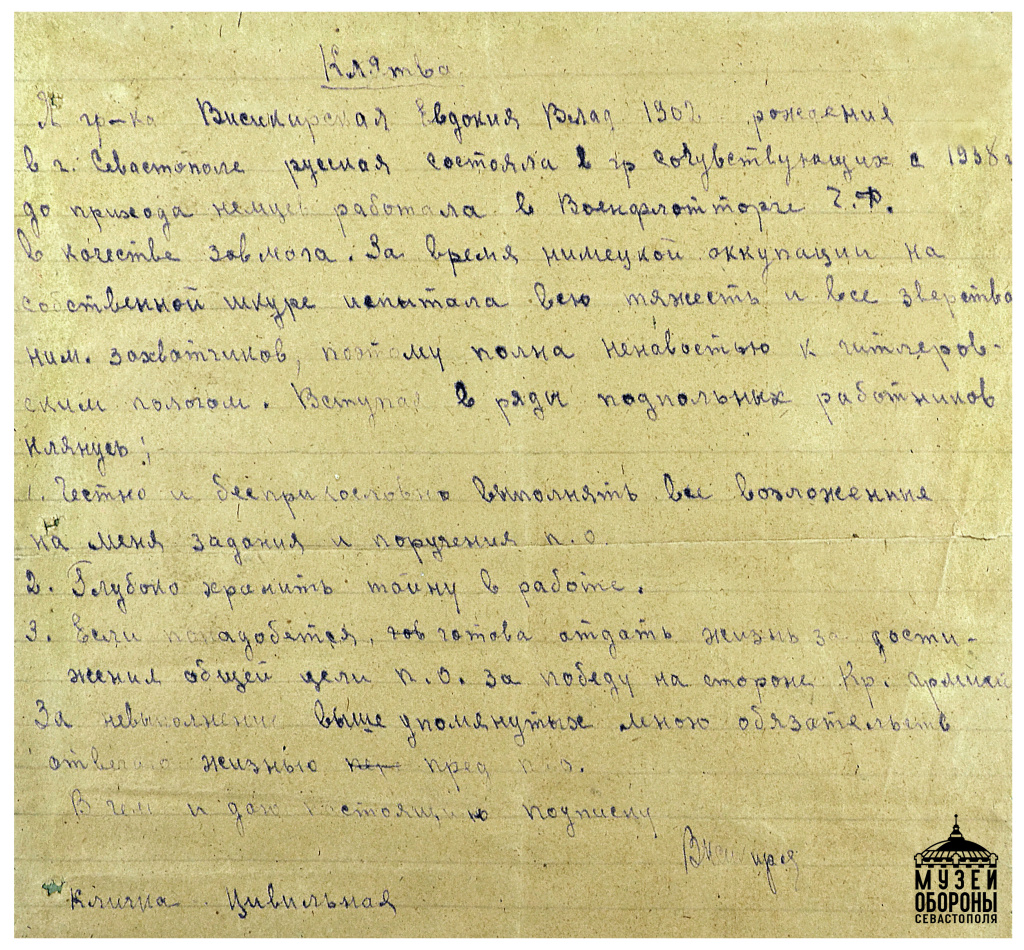 Клятва
Я гр-ка Висикирская Евдокия Влад 1902 рождения
в г. Севастополе русская состояла в гр сочувствующих с 1938 г
до прихода немцев работала в Военфлотторге Ч.Ф.
в качестве завмага. За время нимецкой оккупации на
собственной шкуре испытала всю тяжесть и все зверства
ним. захватчиков, поэтому полна ненавостью к гитлеров-
ским пологом. Вступая в ряды подпольных работников
клянусь:
1. Честно и бесприкословно выполнять все возложенные
на меня задания и поручения п.о.
2. Глубоко хранить тайну в работе.
3. Если понадобется, готова отдать жизнь за дости-
жения общей цели п.о. за победу на стороне Кр. армией
За невыполнение выше упомянутых мною обязательств
отвечаю жизнью пред п.о.
В чем и даю настоящую подписку
Кличка Цивильная
МУЗЕЙ
ОБОРОНЫ
СЕВАСТОПОЛЯ